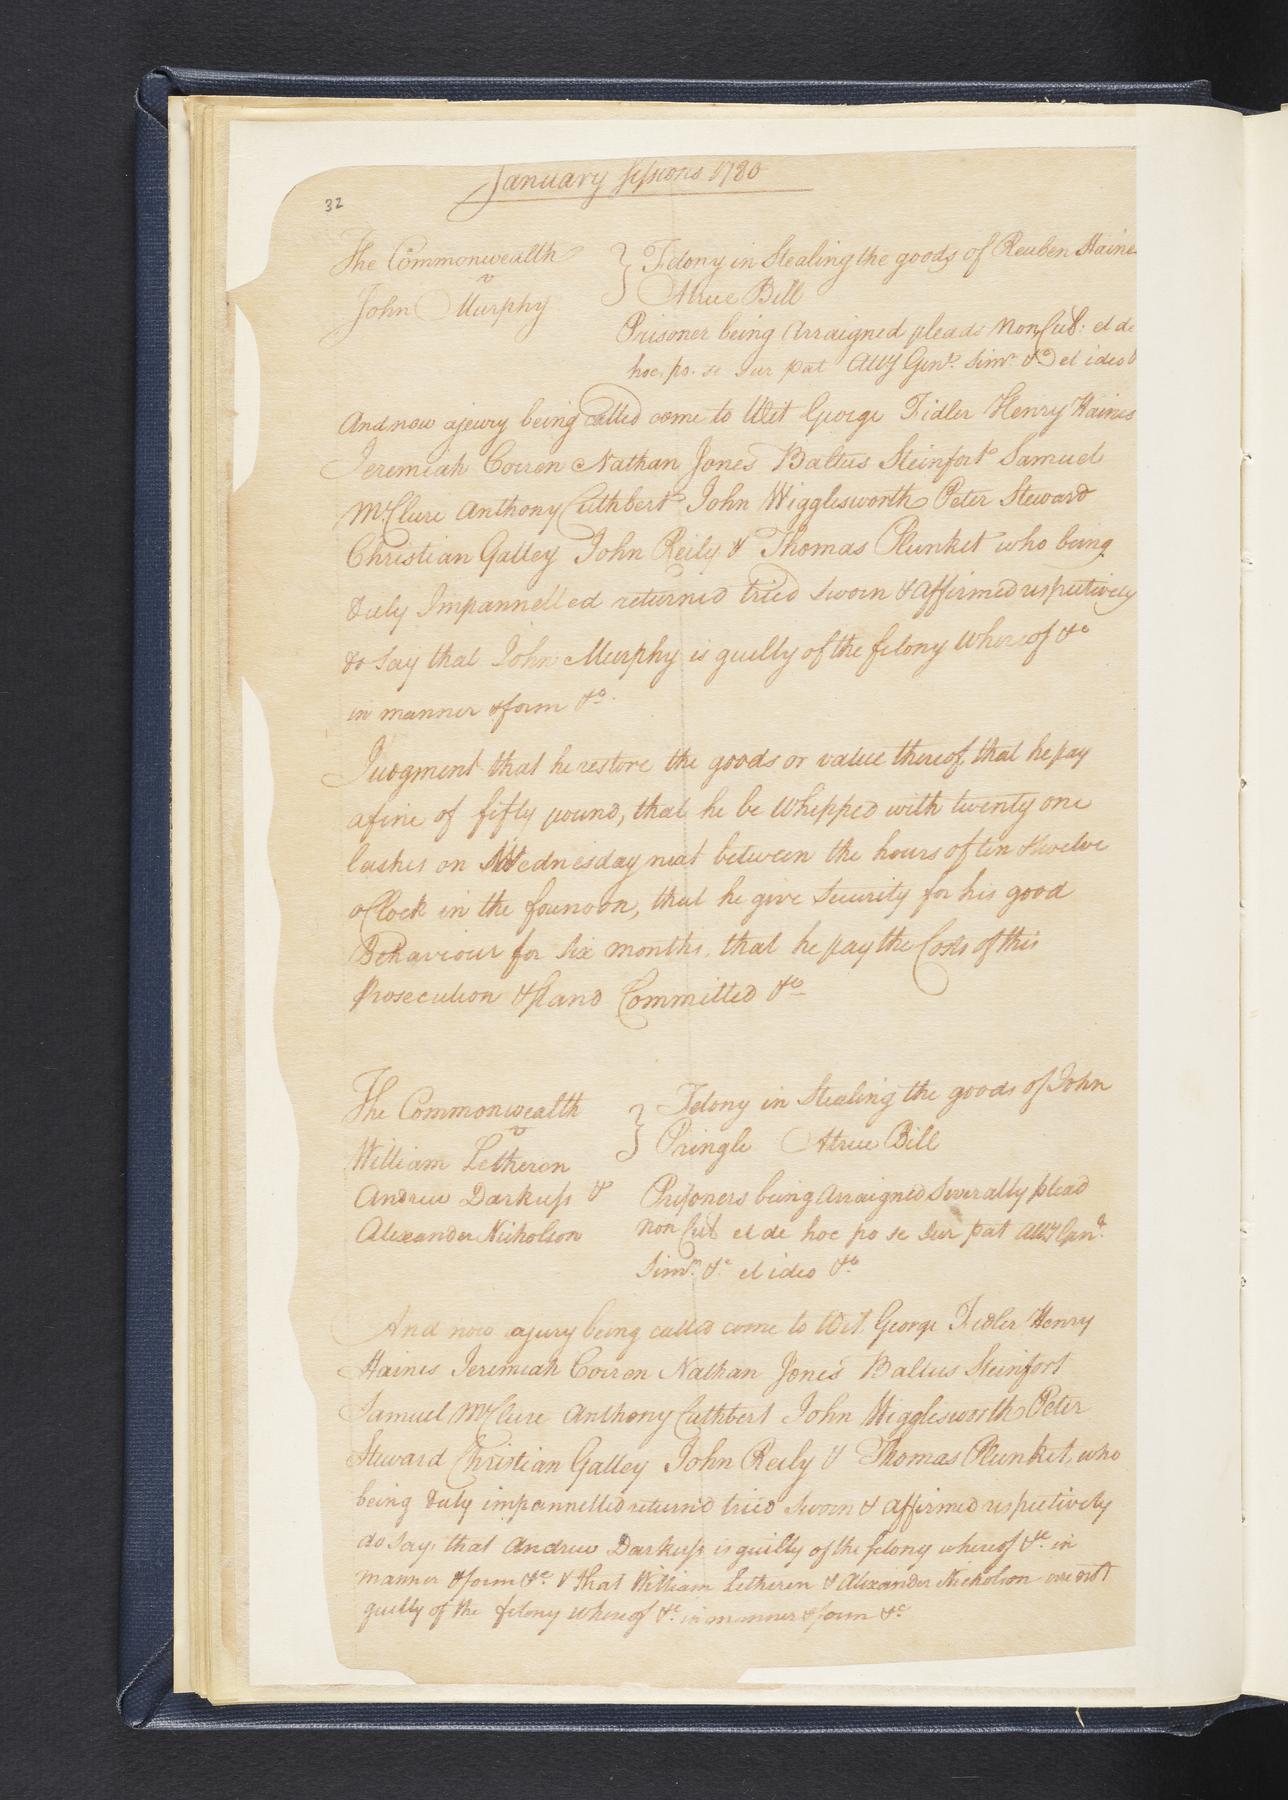 January Sessions 1780
32
The Commonwealth
v
John Murphy
} Felony in Stealing the goods of Reuben Haine
Atrue Bill
Prisoner being Arraigned pleads Non Cul: et de
hoc. po. se Sur pat Atty Genl. Simr. &c et ideo
And now ajeury being called come to Wit George Fidler Henry Haines
Jeremiah Corren Nathan Jones Baltus Steinfort Samuel
McClure Anthony Cuthbert John Wigglesworth Peter Steward
Christian Galley John Reily & Thomas Plunket who being
duly Impannelled returned tried Sworn & affirmed respectively
do Say that John Murphy is guilty of the felony Whereof &c
in manner & form &c.
Judgment that he restore the goods or value thereof, that he pay
afine of fifty pound, that he be Whipped with twenty one
lashes on Wednesday next between the hours of ten & twelve
oClock in the forenoon, that he give Security for his good
Behaviour for Six months, that he pay the Costs of this
Prosecution & Stand Committed &c
The Commonwealth
v
William Letheren
Andrew Darkuss &
Alexander Nicholson
} Felony in Stealing the goods of John
Pringle Atrue Bill
Prisoners being Arraigned Severally plead
non Cul et de hoc po se Sur pat Atty Genl.
Simr. &c et ideo &c
And now ajury being called come to Wit, George Fidler Henry
Haines Jeremiah Corren Nathan Jones Baltus Steinfort
Samuel McClure Anthony Cuthbert John Wigglesworth Peter
Steward Christian Galley John Reily & Thomas Plunket, who
being duly impannelled returnd tried Sworn & affirmed respectively
do Say, that Andrew Darkuss is guilty of the felony whereof &c. in
manner & form &c. & that William Letheren & Alexander Nicholson are not
guilty of the felony whereof &c. in manner & form &c